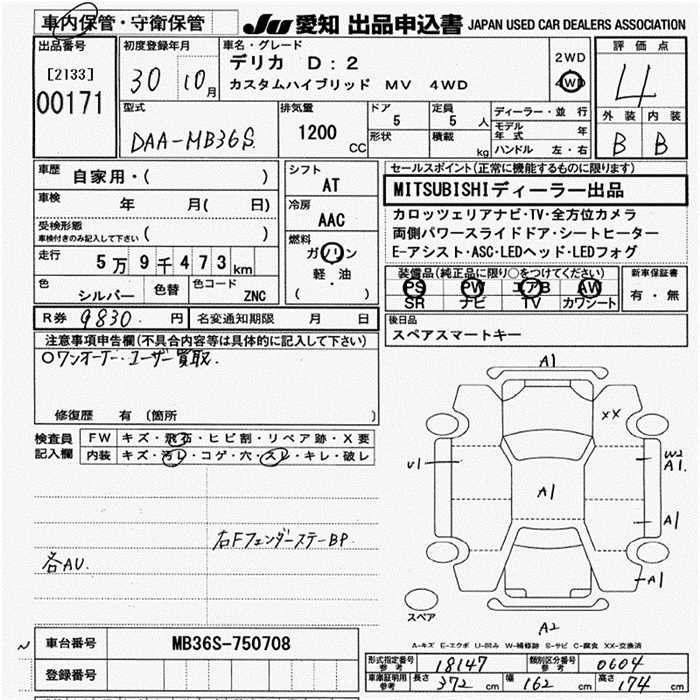 車内保管・守衛保管
JU 愛知 出品申込書 JAPAN USED CAR DEALERS ASSOCIATION
出品番号
[2133]
00171
初度登録年月
30 10月
車名・グレード
デリカ D:2
カスタムハイブリッド MV 4WD
2WD
4WD
評価点
4
外装 内装
B B
型式
DAA-MB36S
排気量
1200 CC
ドア
5
形状
定員
5 人
積載
kg
ディーラー・並行
モデル年式 年
ハンドル 左・右
車歴
自家用・( )
車検
年 月( 日)
受検形態
車検付きのみ記入して下さい ( )
走行
5万9千473km
色
シルバー
色替
色コード
ZNC
シフト
AT
冷房
AAC
燃料
ガソリン
軽・油
( )
セールスポイント(正常に機能するものに限ります)
MITSUBISHIディーラー出品
カロッツェリアナビ・TV・全方位カメラ
両側パワースライドドア・シートヒーター
E-アシスト・ASC・LEDヘッド・LEDフォグ
装備品(純正品に限り○をつけてください)
PS PW エアB AW
SR ナビ TV カワシート
新車保証書
有・無
R券 9830 円
名変通知期限 月 日
後日品
スペアスマートキー
注意事項申告欄(不具合内容等は具体的に記入して下さい)
○ワンオーナー・ユーザー買取
修復歴 有 (箇所 )
検査員
記入欄
FW キズ・飛石・ヒビ割・リペア跡・X要
内装 キズ・汚レ・コゲ・穴・スレ・キレ・破レ
右FフェンダーステーBP
各AU.
A1
XX
U1
W2
A1.
A1
A1
A1
スペア
A2
A-キズ E-エクボ U-凹み W-補修跡 S-サビ C-腐食 XX-交換済
車台番号 MB36S-750708
登録番号
形式指定番号 参考 18147
類別区分番号 参考 0604
車庫証明用 参考 長さ 372 cm 幅 162 cm 高さ 174 cm